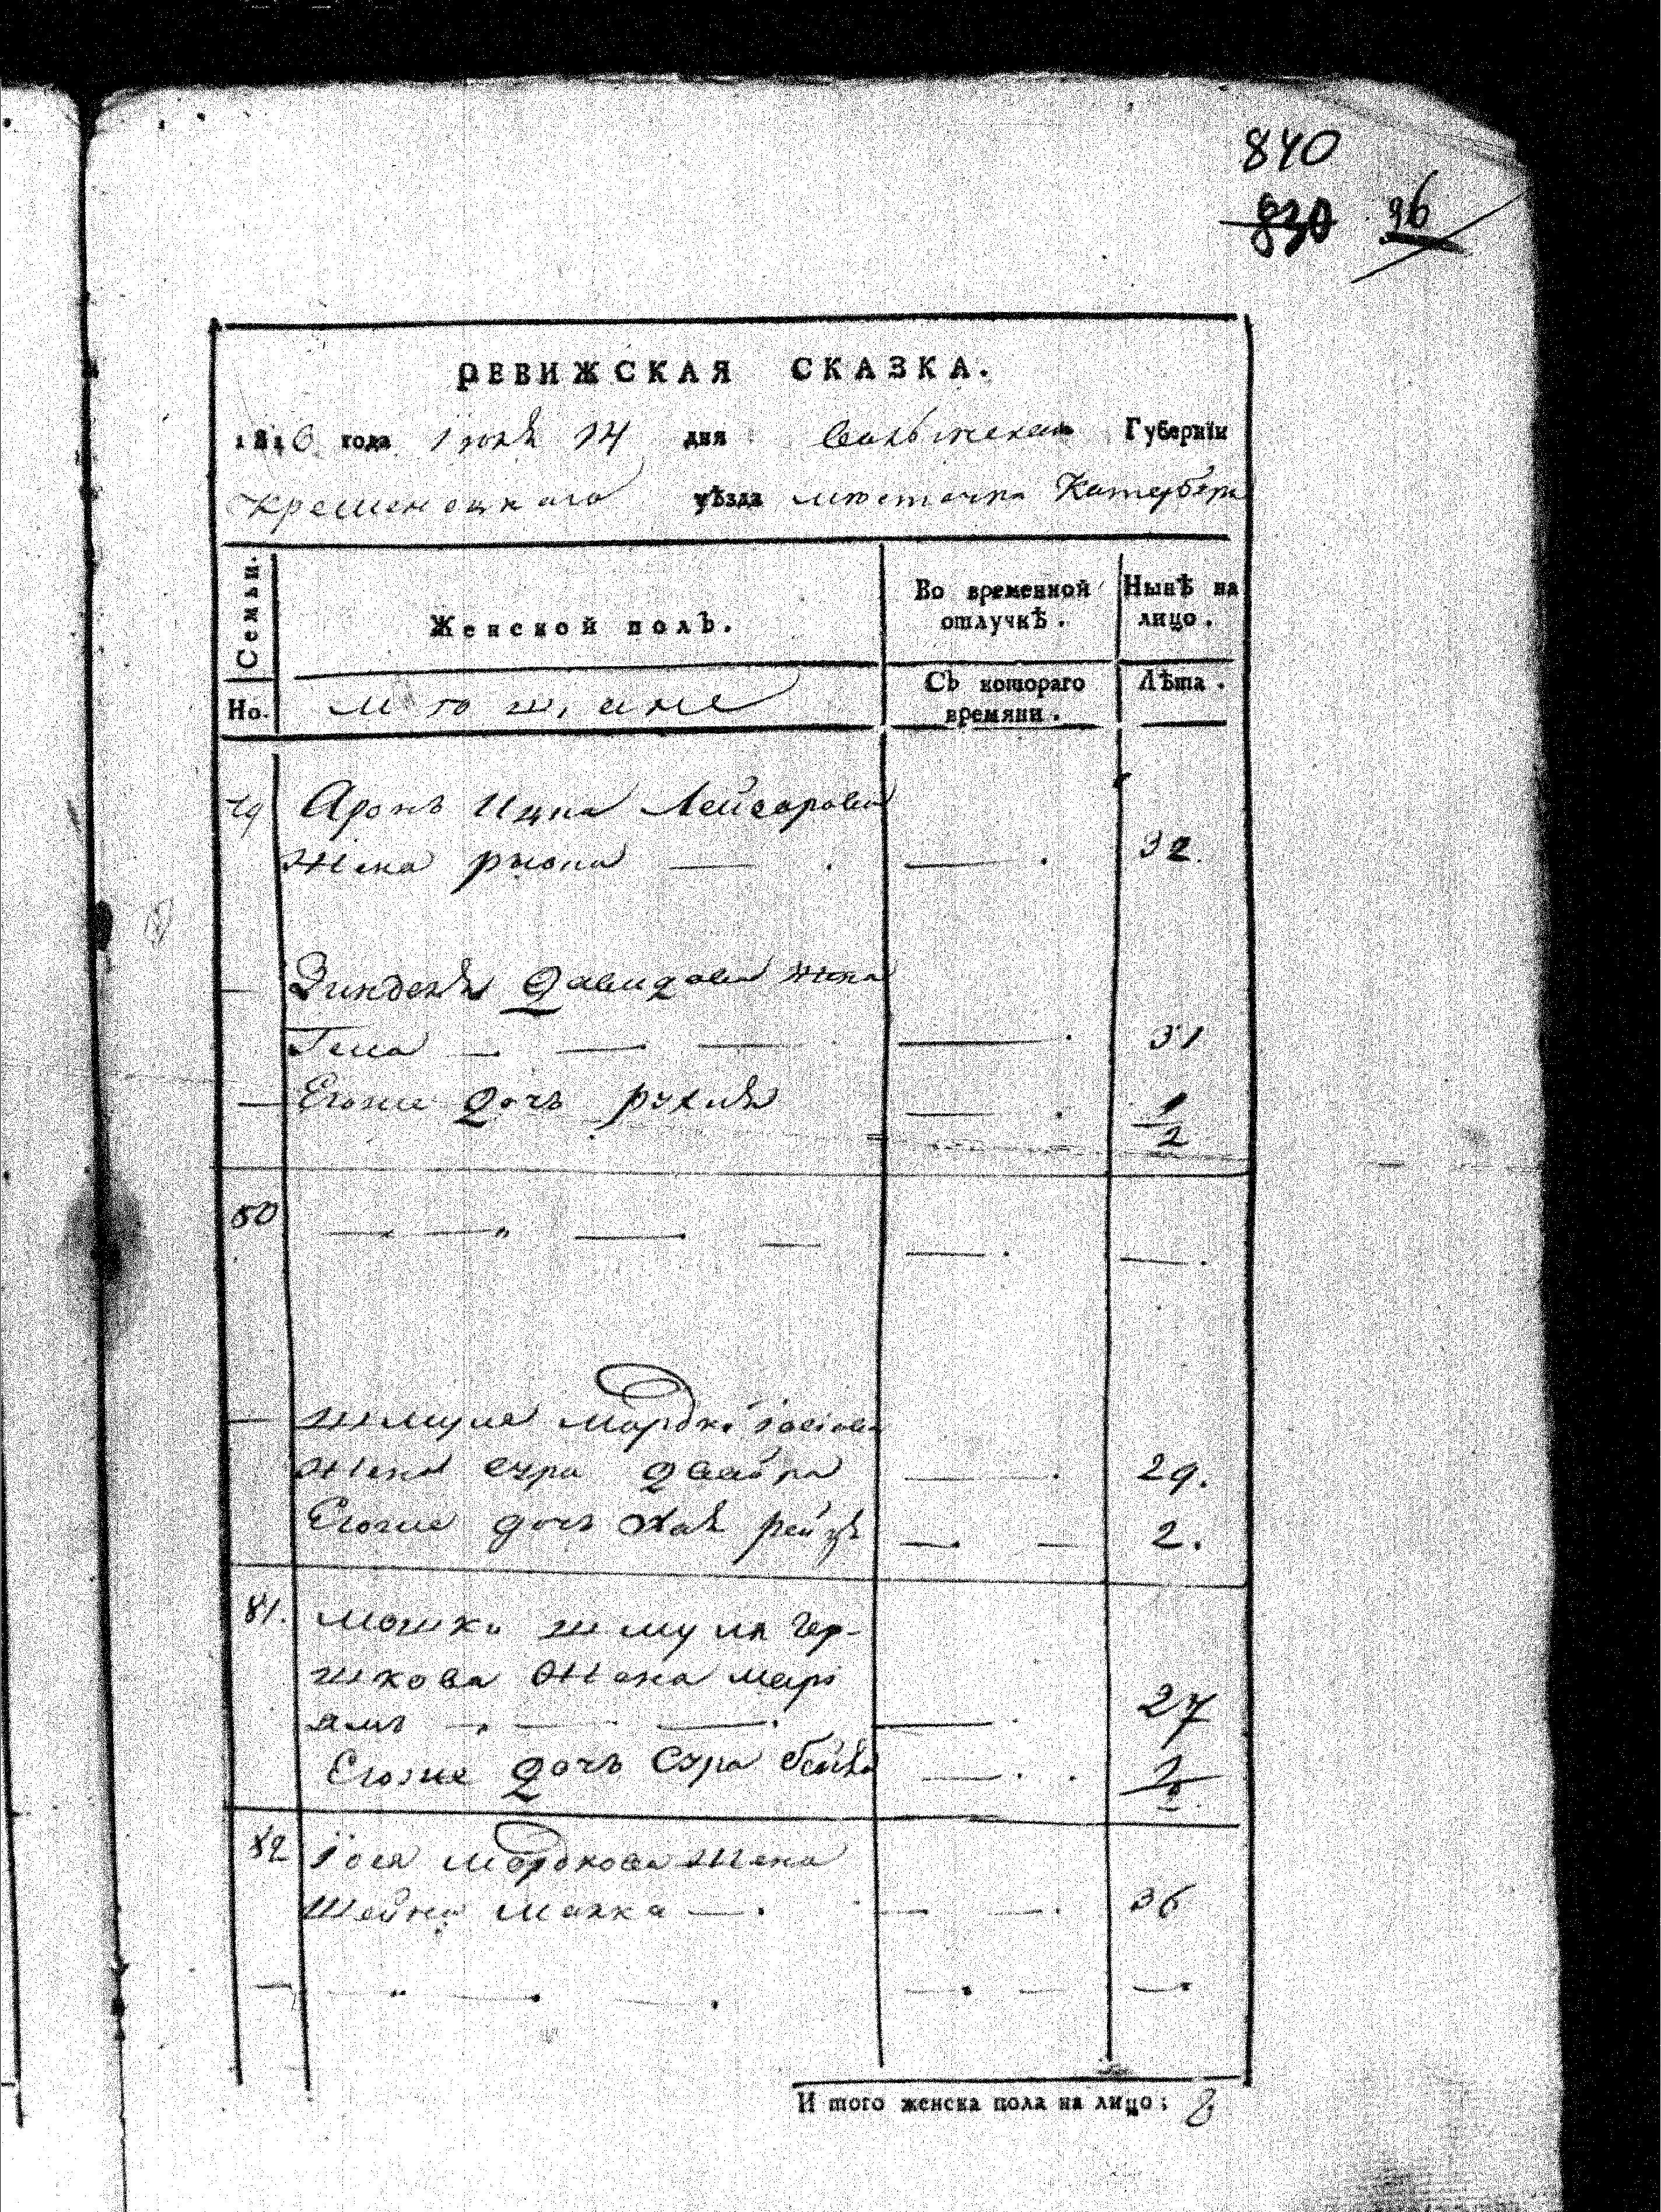 840
830 96
РЕВИЖСКАЯ СКАЗКА.
1816 года Іюня 14 дня Волынской Губерніи
Кременецкаго уѣзда мѣстечка Катербурга
Семьи. Женской полъ. Во временной отлучкѣ. Нынѣ на лицо.
Но. мѣщане Съ котораго времяни. Лѣта.
79 Аронъ Ицка Лейзорова
Жена — . — . 32.
— Зинделя Давидова жена
Геня — . — . — — . 31
— Егоже дочь Рухля — . 1/2
50 — — „ — . — — . — .
— Шмуля Мордк. Іосіова
жена Сура Двойра — . 29.
Егоже дочь Хая Рейзя — . — 2.
81. Мошки Шмуля Гер-
шкова жена Марі
ямъ — . — . — . — . 27
Егоже дочь Сура Бейла — . .
82 Іося Мордкова жена
Шейна Малка — . — — . 36
— — „ — . — . — . — — .
И того женска пола на лицо: 8